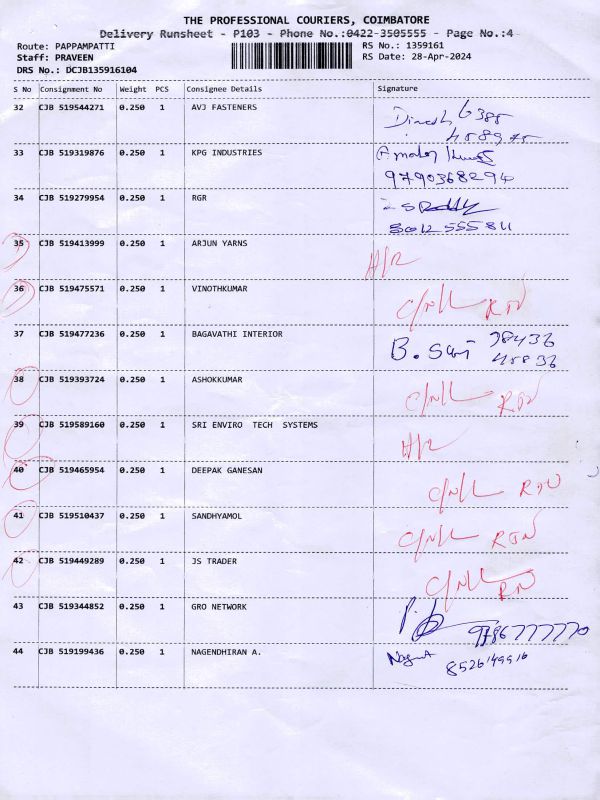 THE PROFESSIONAL COURIERS, COIMBATORE
Delivery Runsheet - P103 - Phone No.:0422-3505555 - Page No.:4
Route: PAPPAMPATTI RS No.: 1359161
Staff: PRAVEEN RS Date: 28-Apr-2024
DRS No.: DCJB135916104
S No Consignment No Weight PCS Consignee Details Signature
32 CJB 519544271 0.250 1 AVJ FASTENERS Dinesh 6385
458975
33 CJB 519319876 0.250 1 KPG INDUSTRIES
9790368294
34 CJB 519279954 0.250 1 RGR
35 CJB 519413999 0.250 1 ARJUN YARNS H/R
36 CJB 519475571 0.250 1 VINOTHKUMAR C/N/L RTN
37 CJB 519477236 0.250 1 BAGAVATHI INTERIOR B. 98436
45836
38 CJB 519393724 0.250 1 ASHOKKUMAR C/N/L RTN
39 CJB 519589160 0.250 1 SRI ENVIRO TECH SYSTEMS H/R
40 CJB 519465954 0.250 1 DEEPAK GANESAN C/N/L RTN
41 CJB 519510437 0.250 1 SANDHYAMOL C/N/L RTN
42 CJB 519449289 0.250 1 JS TRADER C/N/L RTN
43 CJB 519344852 0.250 1 GRO NETWORK 9786777770
44 CJB 519199436 0.250 1 NAGENDHIRAN A. 8526149916